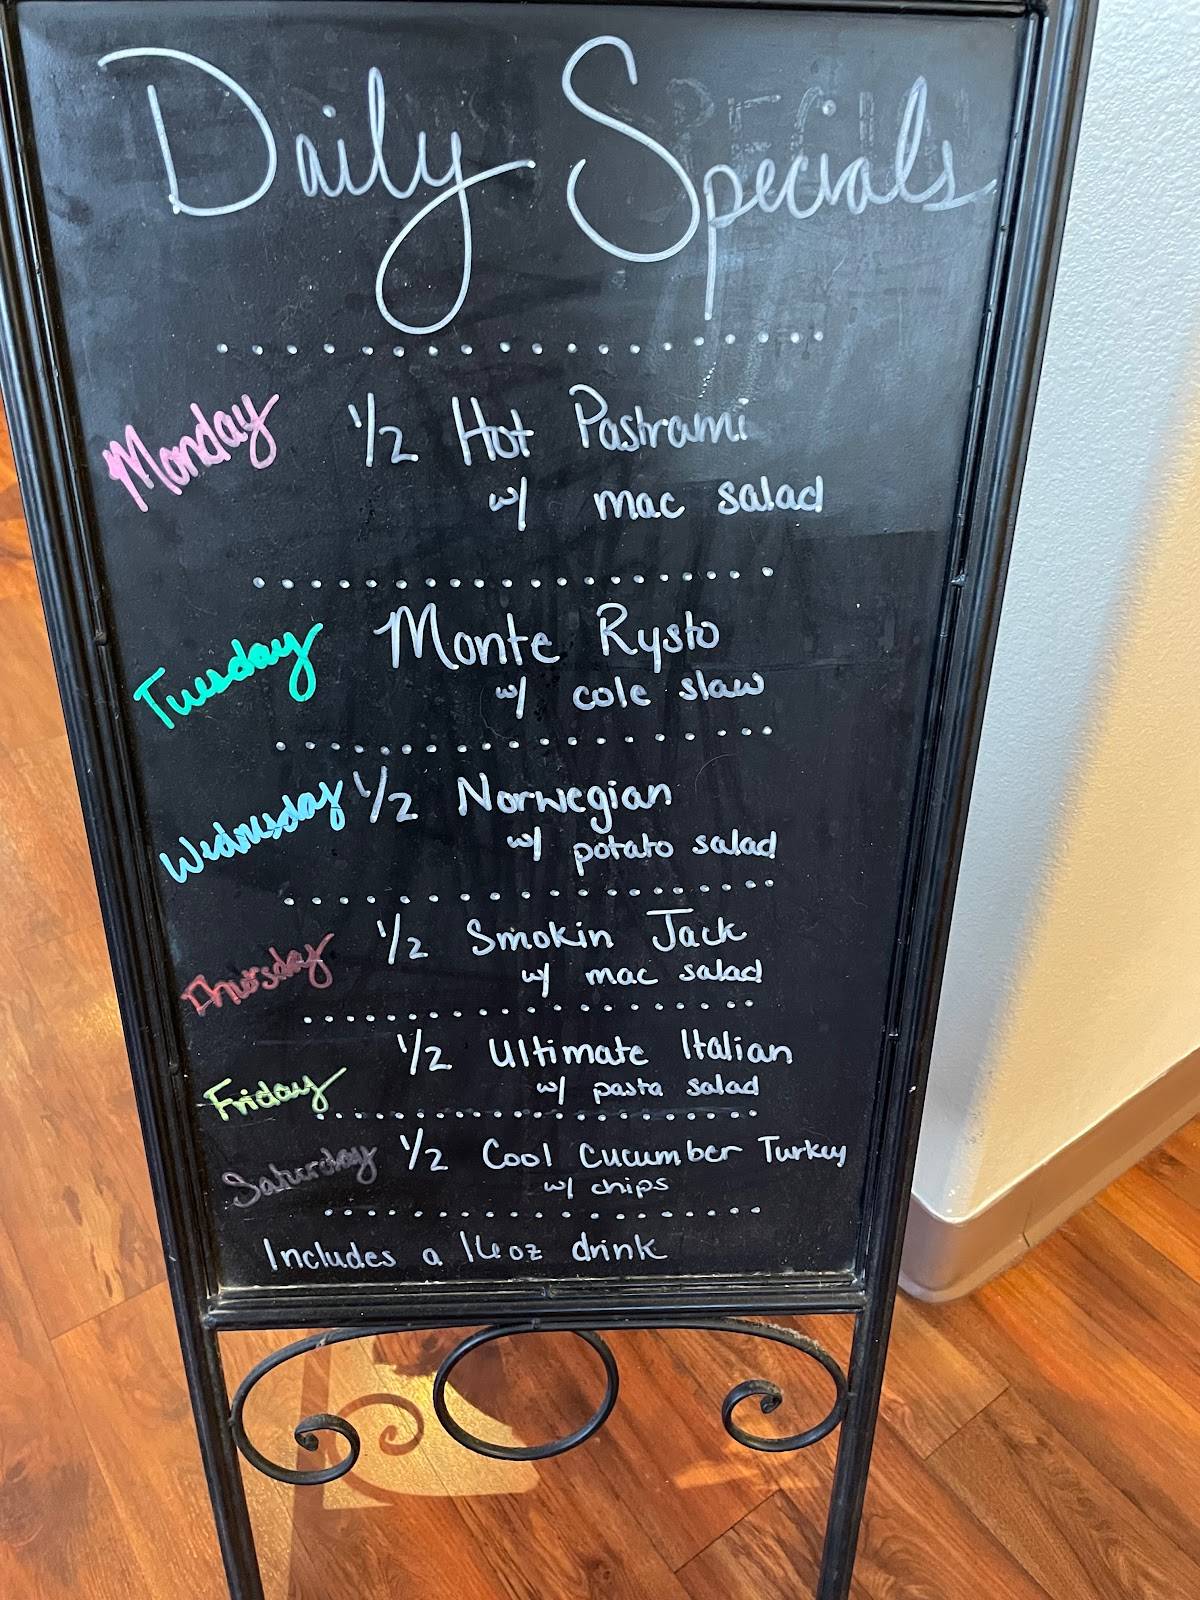 Daily Specials
Monday 1/2 Hot Pastrami
w/ mac salad
Tuesday Monte Rysto
w/ cole slaw
Wednesday 1/2 Norwegian
w/ potato salad
Thursday 1/2 Smokin Jack
w/ mac salad
Friday 1/2 Ultimate Italian
w/ pasta salad
Saturday 1/2 Cool Cucumber Turkey
w/ chips
Includes a 16oz drink